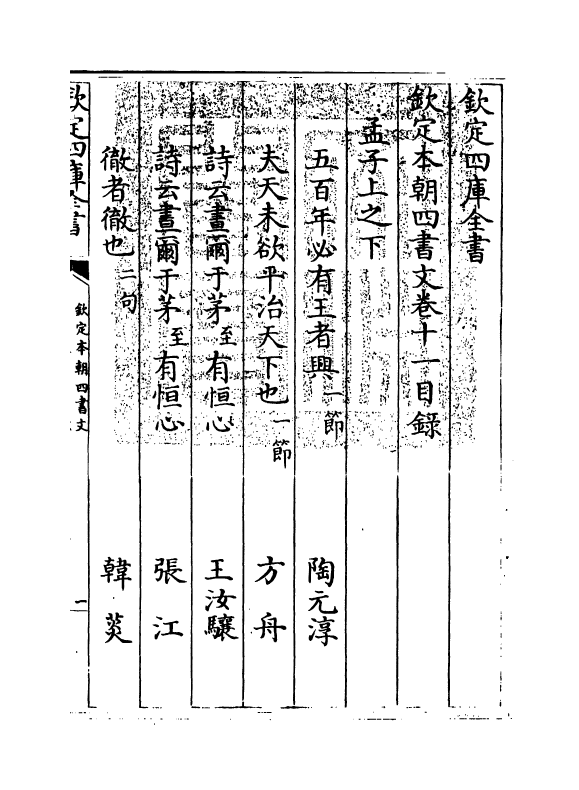 欽定四庫全書
欽定本朝四書文卷十一目錄
孟子上之下
五百年必有王者興一節 陶元淳
夫天未欲平治天下也一節 方舟
詩云晝爾于茅至有恒心 王汝驤
詩云晝爾于茅至有恒心 張江
徹者徹也二句 韓菼
欽定四庫全書
欽定本朝四書文
一